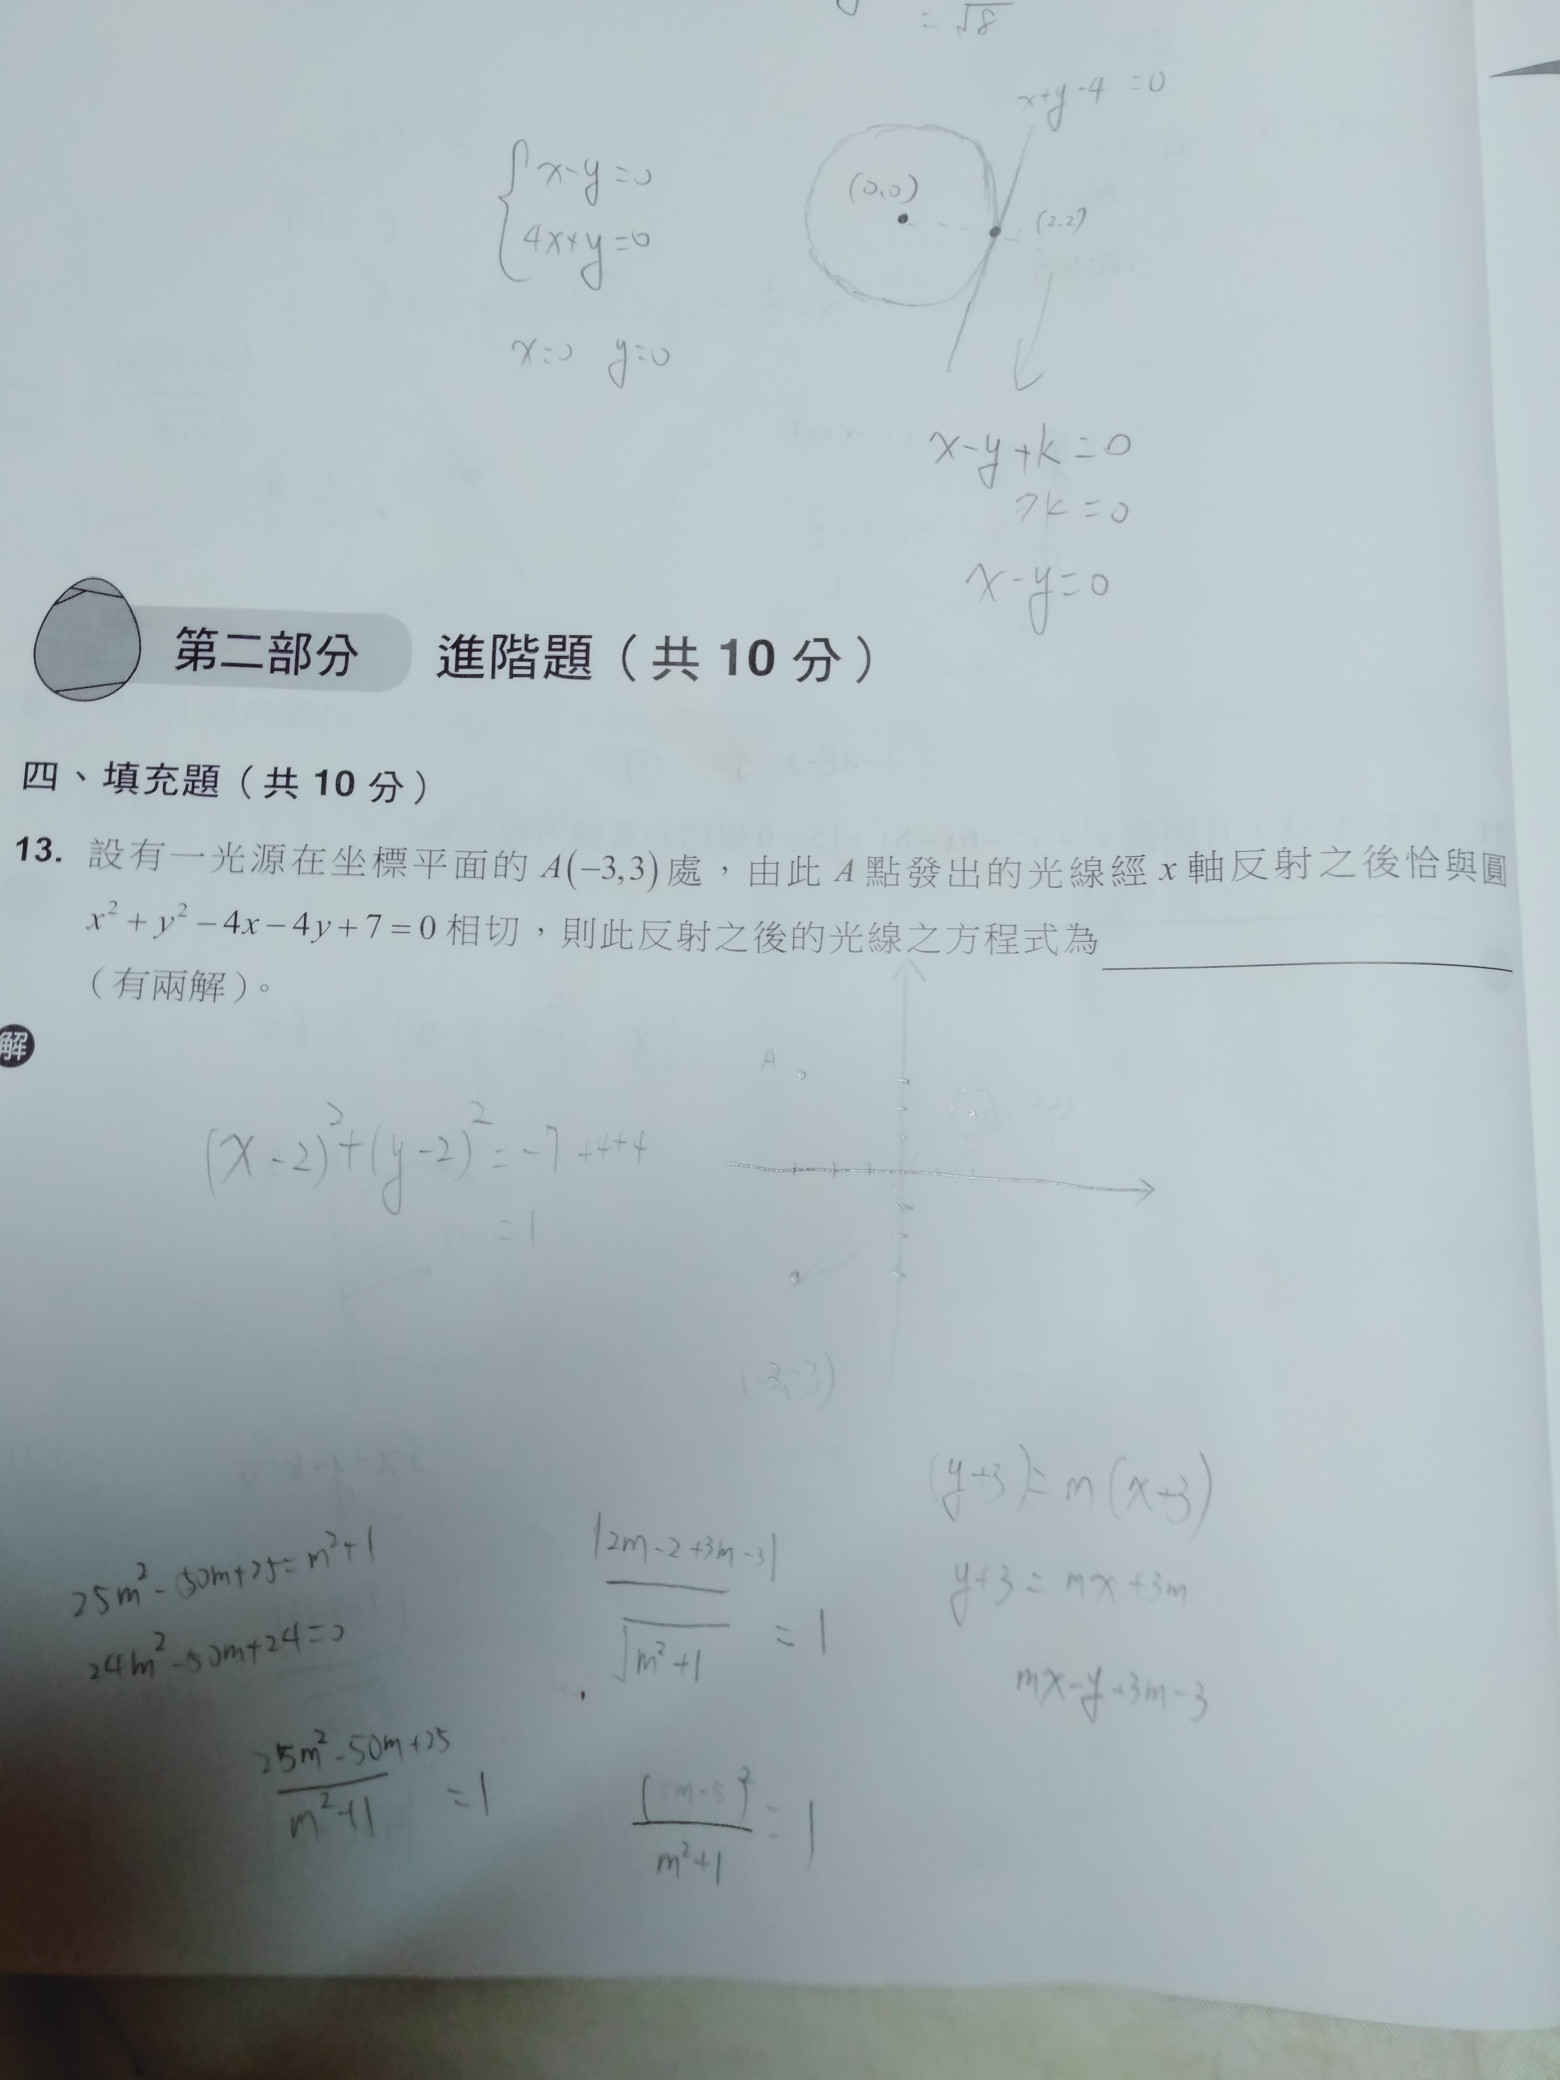 = √8
x+y-4 =0
x-y=0
4x+y=0
(0,0)
(2,2)
x=0 y=0
x-y+k=0
k=0
x-y=0
第二部分 進階題（共 10 分）
四、填充題（共 10 分）
13. 設有一光源在坐標平面的 A(−3,3) 處，由此 A 點發出的光線經 x 軸反射之後恰與圓
x² + y² − 4x − 4y + 7 = 0 相切，則此反射之後的光線之方程式為
（有兩解）。
解
A
(x-2)²+(y-2)²=-7+4+4
=1
(-3,-3)
(y+3)=m(x+3)
y+3=mx+3m
mx-y+3m-3
|2m-2+3m-3|
√m²+1 =1
25m²-50m+25=m²+1
24m²-50m+24=0
25m²-50m+25
m²+1 =1
(5m-5)²
m²+1 =1